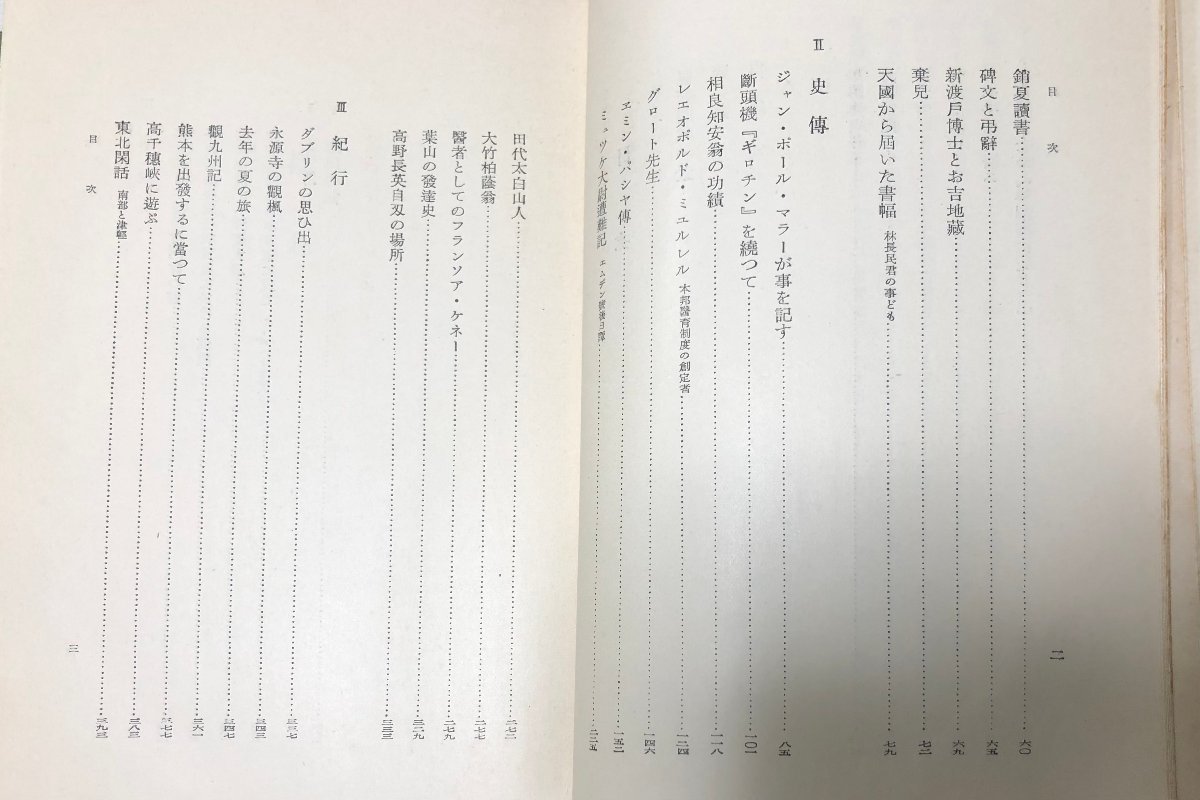 目次
銷夏讀書……六〇
碑文と弔辭……六五
新渡戶博士とお吉地藏……六九
棄兒……七二
天國から屆いた書幅 林長民君の事ども……七九
Ⅱ 史傳
ジャン・ポール・マラーが事を記す……八五
斷頭機『ギロチン』を繞つて……一〇一
相良知安翁の功績……一一八
レエオポルド・ミュルレル 本邦醫育制度の創定者……一二四
グロート先生……一四六
エミン・パシヤ傳……一五二
ミュッケ大尉遭難記 エムデン號後日譚……二二五
二
田代太白山人……二七二
大竹柏蔭翁……二七七
醫者としてのフランソア・ケネー……二七九
葉山の發達史……三二九
高野長英自刄の場所……三三三
Ⅲ 紀行
ダブリンの思ひ出……三三七
永源寺の觀楓……三四三
去年の夏の旅……三四七
觀九州記……三六一
熊本を出發するに當つて……三七七
高千穗峽に遊ぶ……三八三
東北閑話 南部と津輕……三九三
目次
三